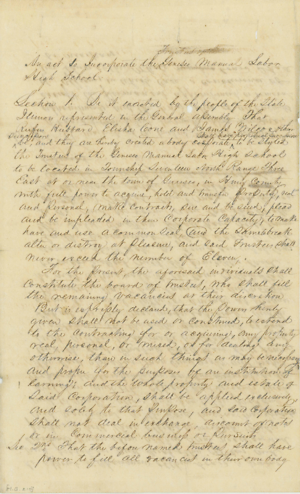 An act to Incorporate the Genesee Manual Labor
High School
Section 1. Be it enacted by the people of the State
Illinois represented in the General assembly That
Rufus Hubbard, Elisha Cone and James
&c, and they are hereby created a body corporate to be styled
the Trustees of the Genesee Manual Labor High School
to be located in Township Seventeen North Range Three
East at or near the town of Genesee, in Henry County
with power to accept, hold and transfer property, real
and personal, make Contracts, sue and be sued, plead
and be impleaded in their Corporate Capacity, to make
have and use a common Seal and the Same break
alter or destroy at pleasure, and said Trustees shall
Never exceed the number of Eleven.
For the present the aforesaid individuals shall
Constitute the board of trustees, who shall fill
the remaining vacancies at their discretion
But it is expressly declared, that the Powers hereby
given shall not be used or Construed, to extend
to the Contracting for or acquiring, any property
real, personal, or mixed, or for dealing
otherwise, than in such things as may be necessary
and proper for the purposes of an institution of
Learning; And the whole property and estate of
Said Corporation, shall be applied exclusively
and solely to that purpose, and said Corporation
shall not deal in exchange, discount of notes
or in Commercial business or
Sec 2d That the before named trustees shall have
power to fill all vacancies in their own body